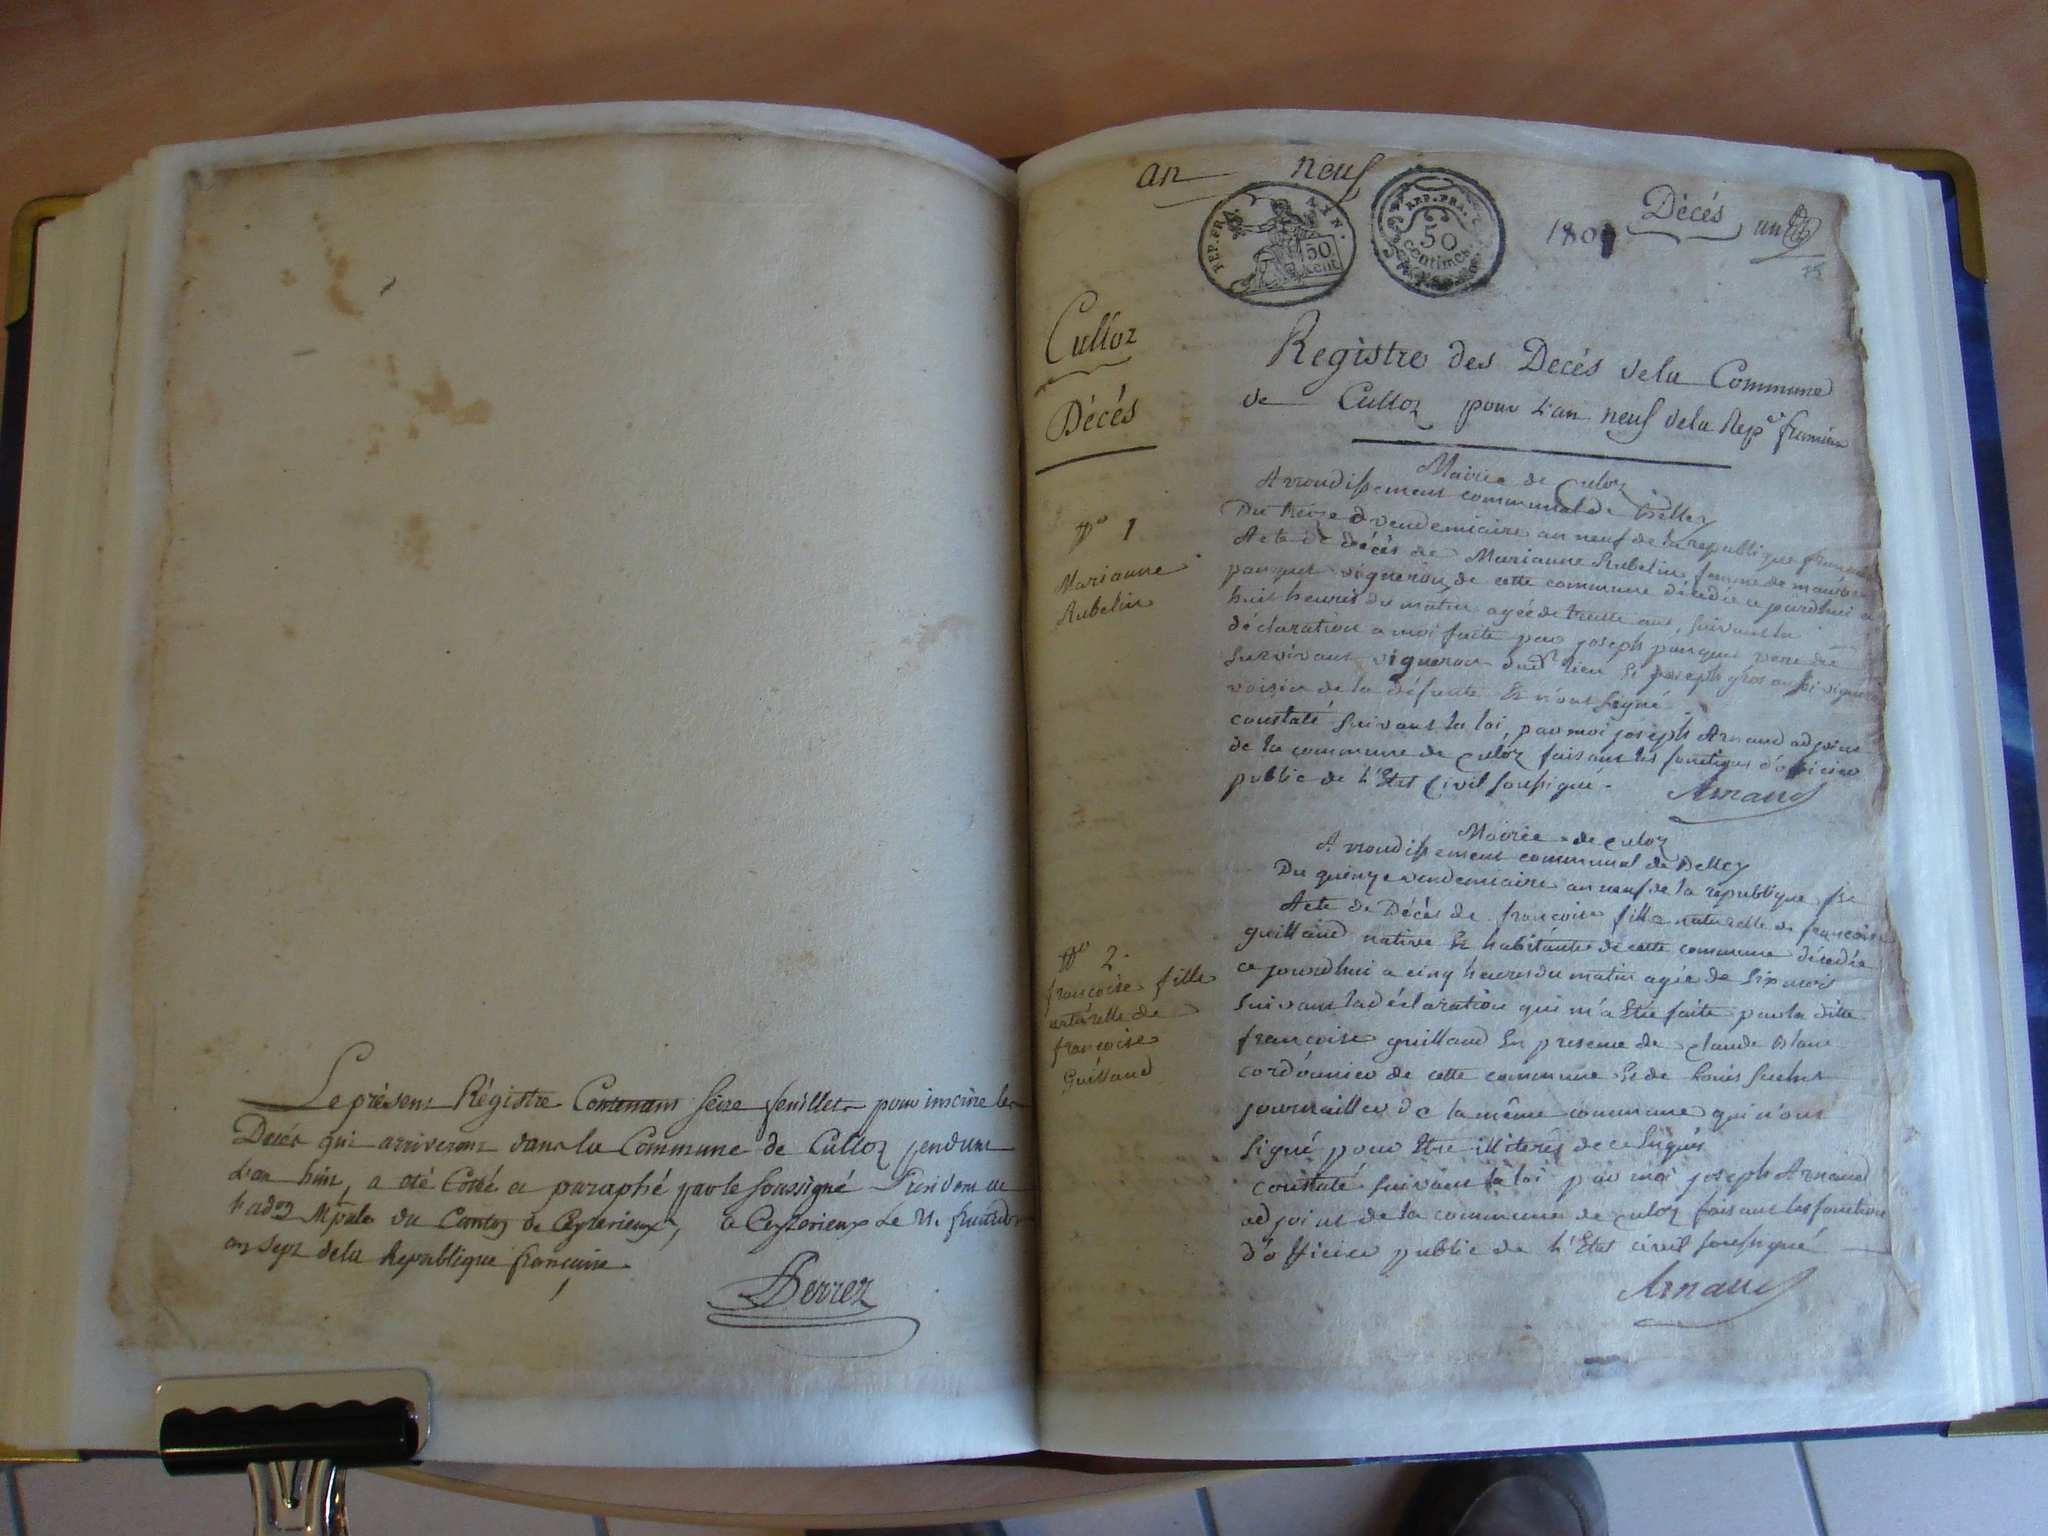 Le présent Régistre Contenant Seize feuillets pour inscrire les
Décés qui arriveront dans la Commune de Culloz pendant
L'an huit, a été Cotté et paraphé par le Soussigné Président de
l'adon Mpale du Canton de Ceyzerieux, a Ceyzerieux Le fructidor
an Sept dela Republique française
Derrez
an neuf
REP. FRA. AIN.
50
cent
REP. FRA.
50
centimes
180
Décés un
75
Culloz
Décés
Registre des Decés dela Commune
de Culloz pour L'an neuf dela Repe francaise
Mairie de Culoz
Arrondissement communal de Belley
Du treize vendemiaire an neuf de la republique francaise
N° 1
Marianne
Rubelin
Acte de décés de Marianne Rubelin femme de
panquet vigneron de cette commune décédée ce jourdhui a
huit heures du matin agée de trente ans, suivant la
déclaration a moi faite par joseph panquet pere du
survivant vigneron dudt lieu Et joseph gros aussi vigneron
voisin de la défunte Et n'ont signé
constaté suivant la loi, par moi joseph Arnaud adjoint
de la commune de Culoz faisant les fonctions d'officier
public de l'Etat Civil soussigné.
Arnaud
Mairie de Culoz
Arrondissement communal de Belley
Du quinze vendemiaire an neuf de la republique fse
N° 2.
françoise fille
naturelle de
françoise
Guilland
Acte de Décès de françoise fille naturelle de françoise
guilland native Et habitante de cette commune décédée
ce jourdhui a cinq heures du matin agée de six mois
suivant la déclaration qui m'a Eté faite par la ditte
françoise guilland En presence de Claude Blanc
cordonnier de cette commune Et de Louis
journaillier de la même commune qui n'ont
signé pour Etre illiterés de ce enquis
constaté suivant la loi par moi joseph Arnaud
adjoint de la commune de Culoz faisant les fonctions
d'officier public de l'Etat civil soussigné
Arnaud